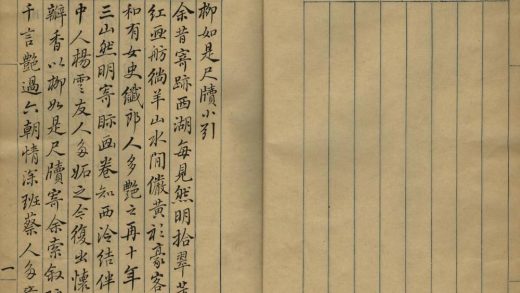 柳如是尺牘小引
余昔寄跡西湖每見然明拾翠
紅画舫徜羊山水間儼黃衫豪客
和有女史纖郎人多艷之再十年
三山然明寄眎画卷知西泠結伴
中人楊雲友人多妬之今復出懷
瓣香以柳如是尺牘寄余索叙
千言艷過六朝情深班蔡人多
一